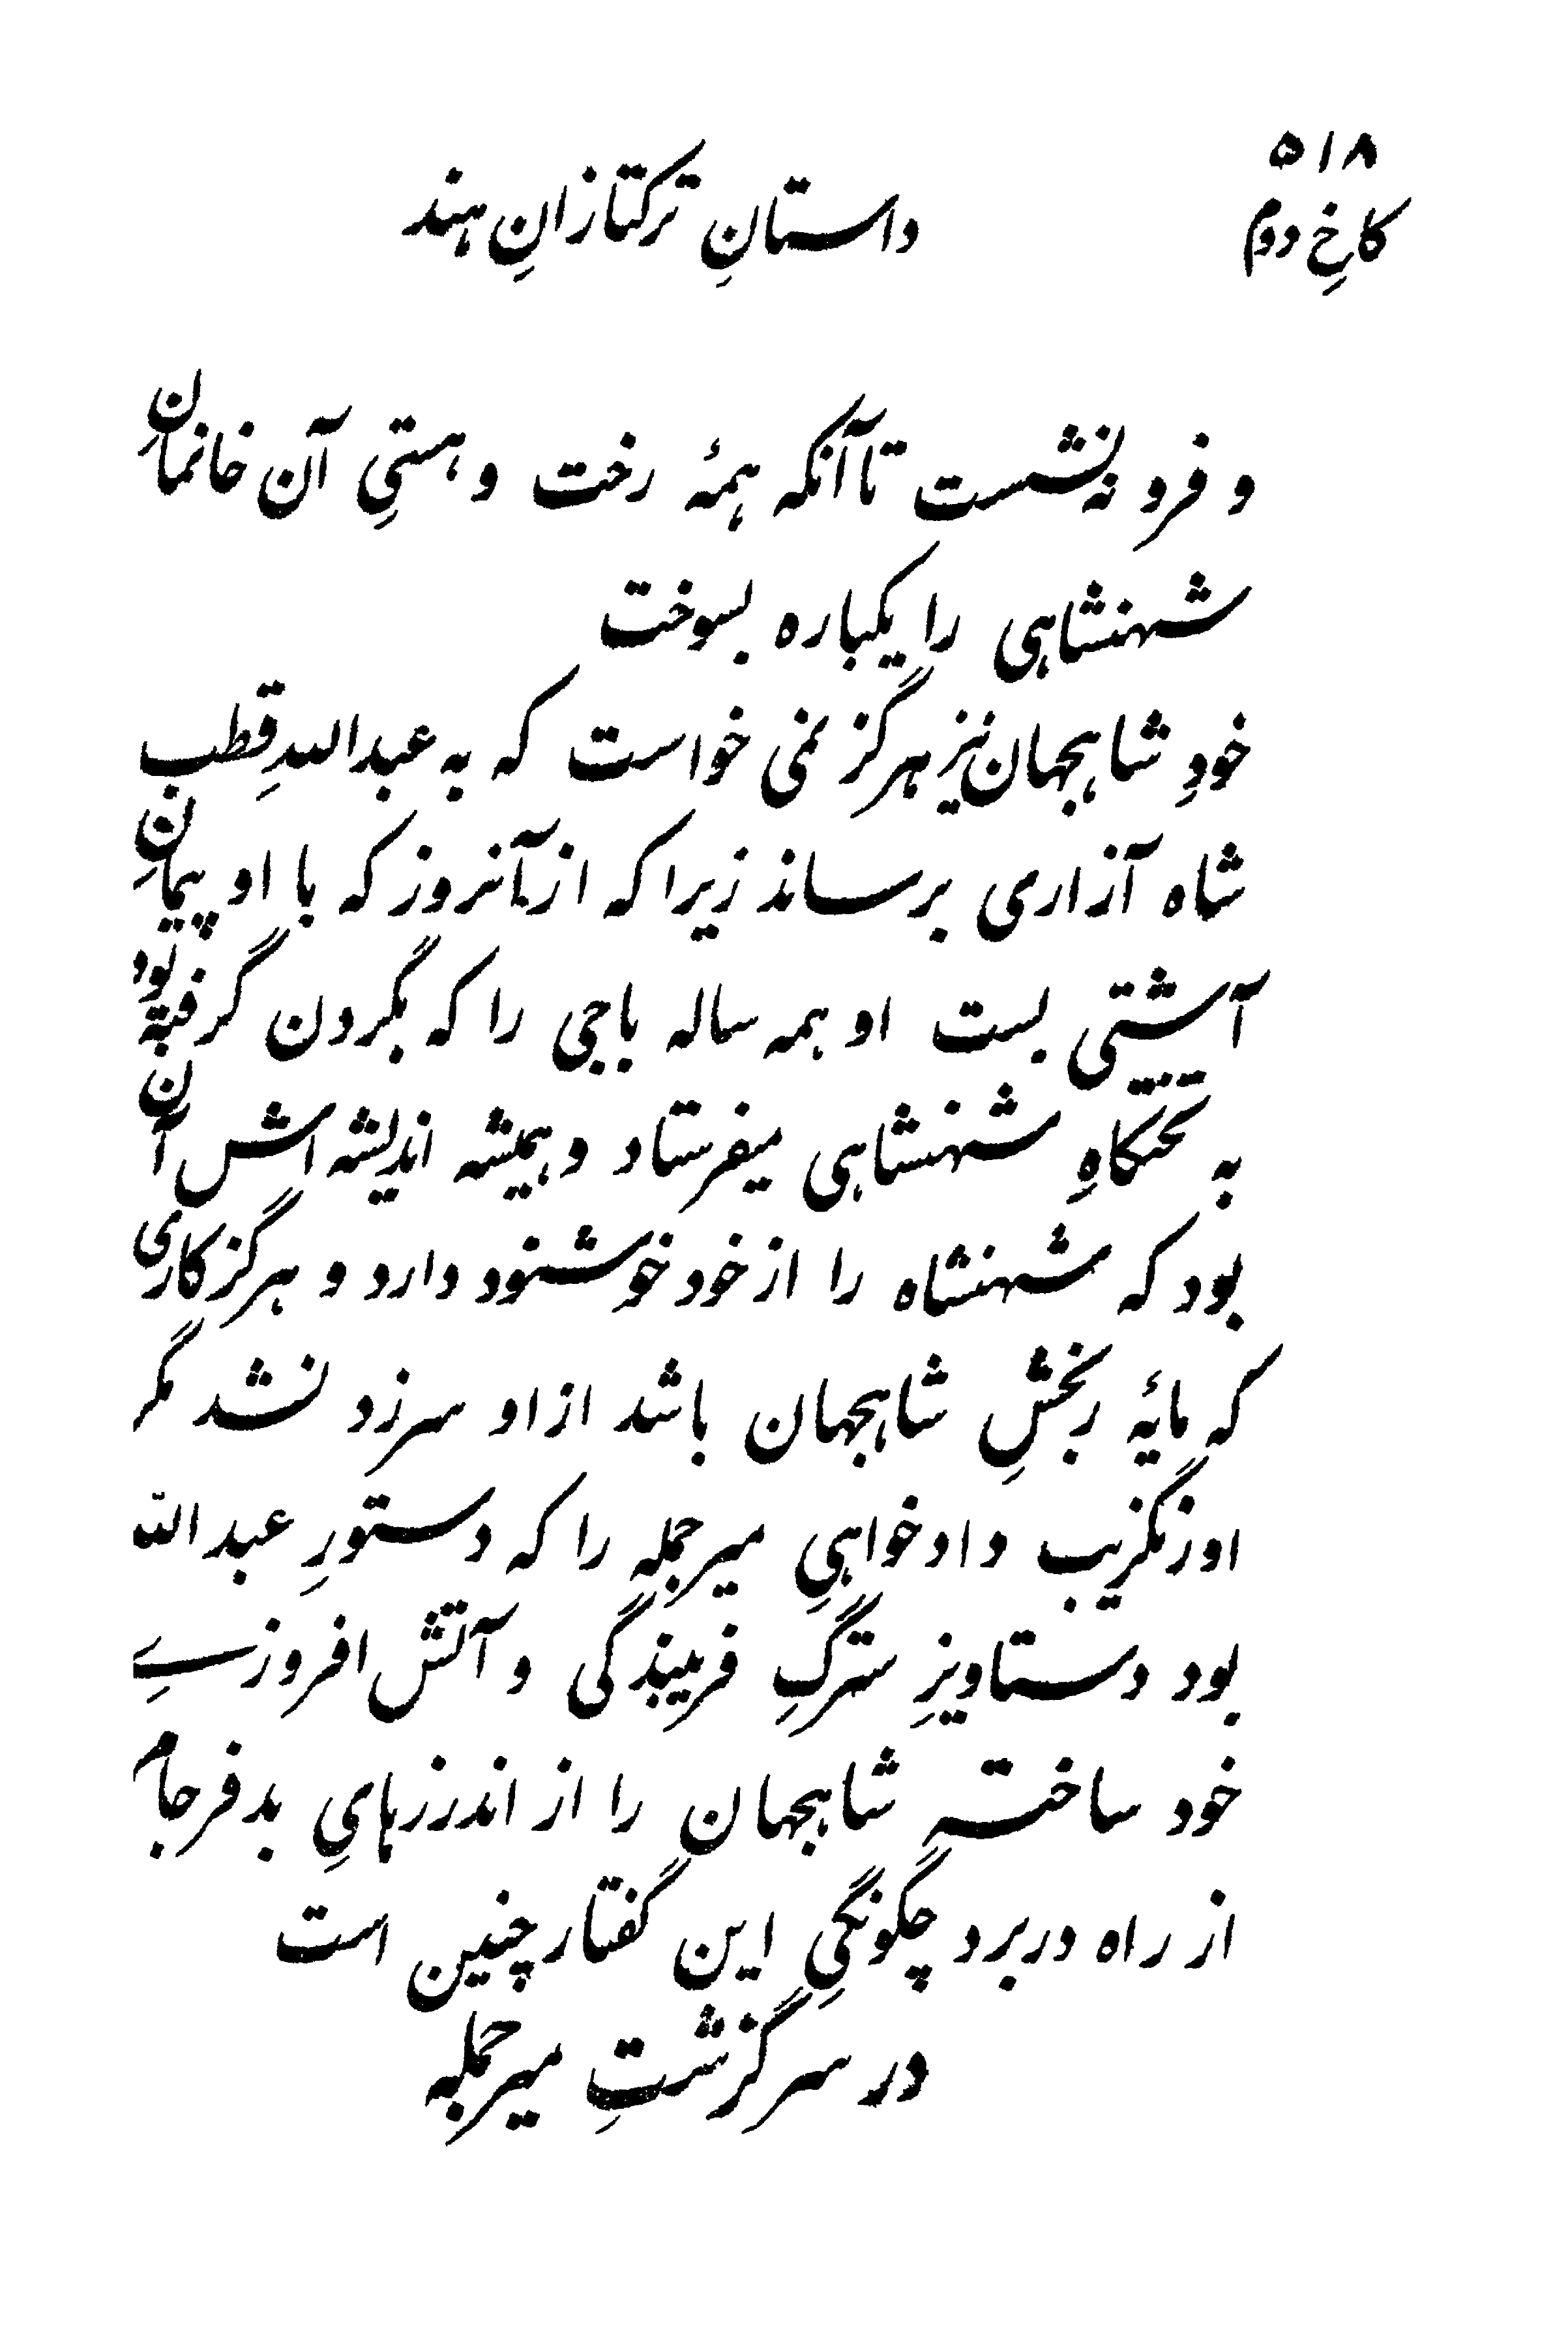 ۵۱۸
کاخِ دوم
داستانِ ترکتازانِ هند
و فرو نه نشست تا آنکه همهٔ رخت و هستیِ آن خانمانِ
شهنشاهی را یکباره بسوخت
خودِ شاهجهان نیز هرگز نمی خواست که به عبداللهِ قطب
شاه آزاری برساند زیرا که از آنروز که با او پیمانِ
آشتی بست او همه ساله باجی را که بگردن گرفته بود
به تختگاهِ شهنشاهی میفرستاد و همیشه اندیشه اش آن
بود که شهنشاه را از خود خوشنود دارد و هرگز کاری
که مایهٔ رنجشِ شاهجهان باشد از او سر زد نشد مگر
اورنگزیب دادخواهیِ میر جمله را که دستورِ عبدالله
بود دستاویزِ سترگِ فریبندگی و آتش افروزےِ
خود ساخته شاهجهان را از اندرزهایِ بدفرجام
از راه در برد چگونگیِ این گفتار چنین است
در سرگزشتِ میر جمله